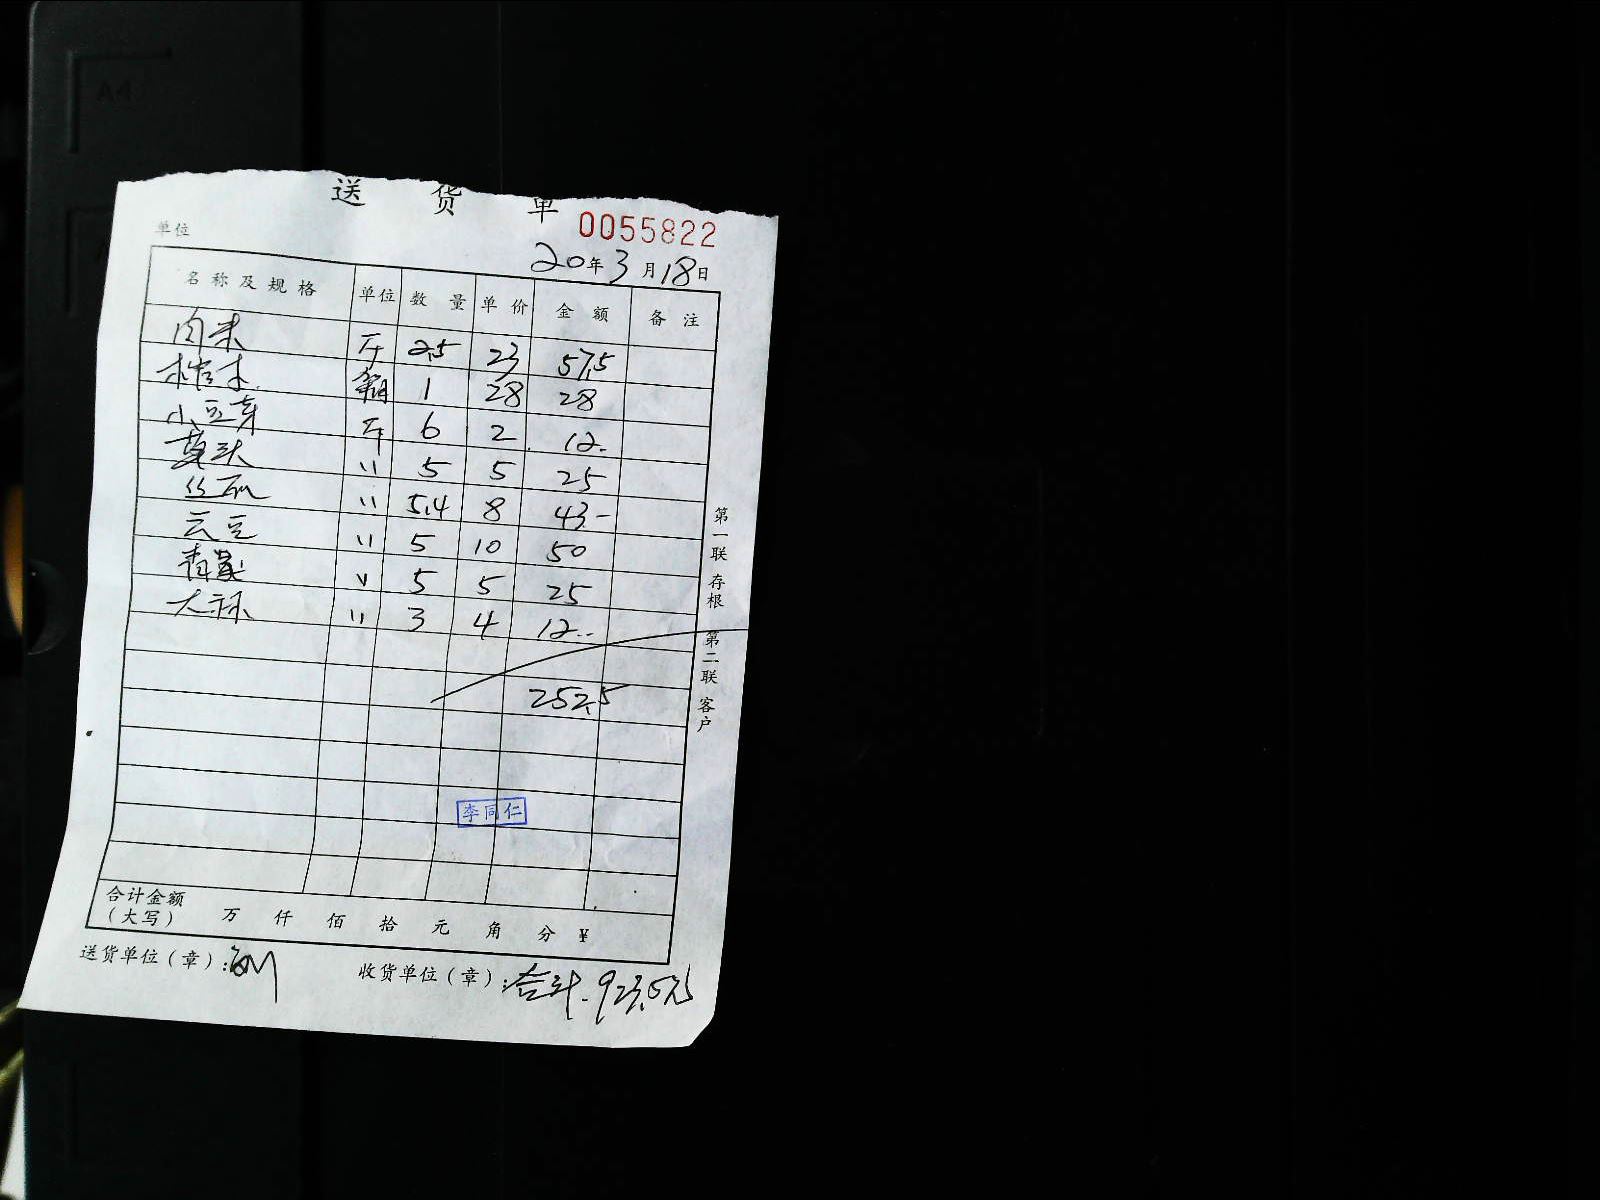 A4
送货单
0055822
单位
20年3月18日
名称及规格 单位 数量 单价 金额 备注
肉末 斤 2.5 23 57.5
箱 1 28 28
小豆芽 斤 6 2 12.
〃 5 5 25
丝瓜 〃 5.4 8 43.-
云豆 〃 5 10 50
〃 5 5 25
大 〃 3 4 12..
252.5
李同仁
第一联 存根
第二联 客户
合计金额
(大写) 万 仟 佰 拾 元 角 分 ¥
送货单位(章): 收货单位(章): 合计.923.5元